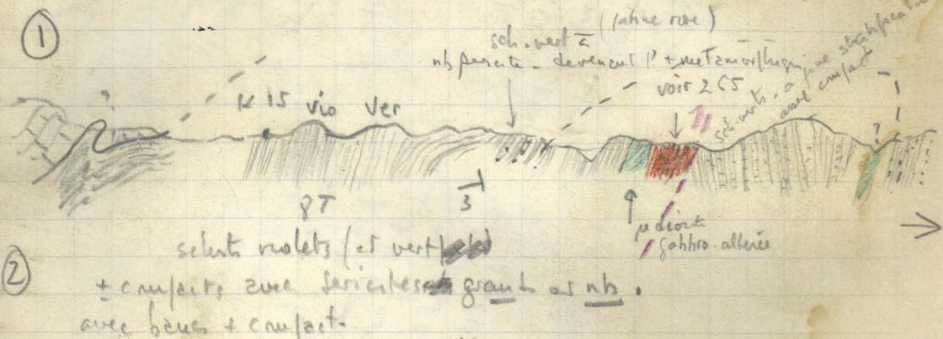 ①
(même rive)
sch. vert à
nb parcits - devenant + métamorphique
voir 265
sch. verts - à fine stratification
assez compact
?
K 15 vio ver
?
8T
3
µ diorite
gabbro - altérée
schists violets (et vert
②
± compacts avec sericites grant et nb.
avec bancs + compact.